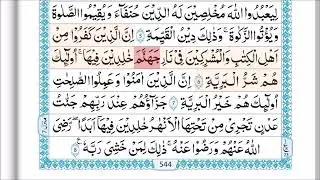 لِيَعۡبُدُوا اللّٰهَ مُخۡلِصِيۡنَ لَهُ الدِّيۡنَ حُنَفَآءَ وَيُقِيۡمُوا الصَّلٰوةَ
وَيُؤۡتُوا الزَّكٰوةَ وَذٰلِكَ دِيۡنُ الۡقَيِّمَةِ ۞ اِنَّ الَّذِيۡنَ كَفَرُوۡا مِنۡ
اَهۡلِ الۡكِتٰبِ وَالۡمُشۡرِكِيۡنَ فِىۡ نَارِ جَهَنَّمَ خٰلِدِيۡنَ فِيۡهَا ؕ اُولٰٓئِكَ
هُمۡ شَرُّ الۡبَرِيَّةِ ۞ اِنَّ الَّذِيۡنَ اٰمَنُوۡا وَعَمِلُوا الصّٰلِحٰتِ
اُولٰٓئِكَ هُمۡ خَيۡرُ الۡبَرِيَّةِ ۞ جَزَآؤُهُمۡ عِنۡدَ رَبِّهِمۡ جَنّٰتُ
عَدۡنٍ تَجۡرِىۡ مِنۡ تَحۡتِهَا الۡاَنۡهٰرُ خٰلِدِيۡنَ فِيۡهَاۤ اَبَدًا ؕ رَضِىَ
اللّٰهُ عَنۡهُمۡ وَرَضُوۡا عَنۡهُ ؕ ذٰلِكَ لِمَنۡ خَشِىَ رَبَّهٗ ۞
544